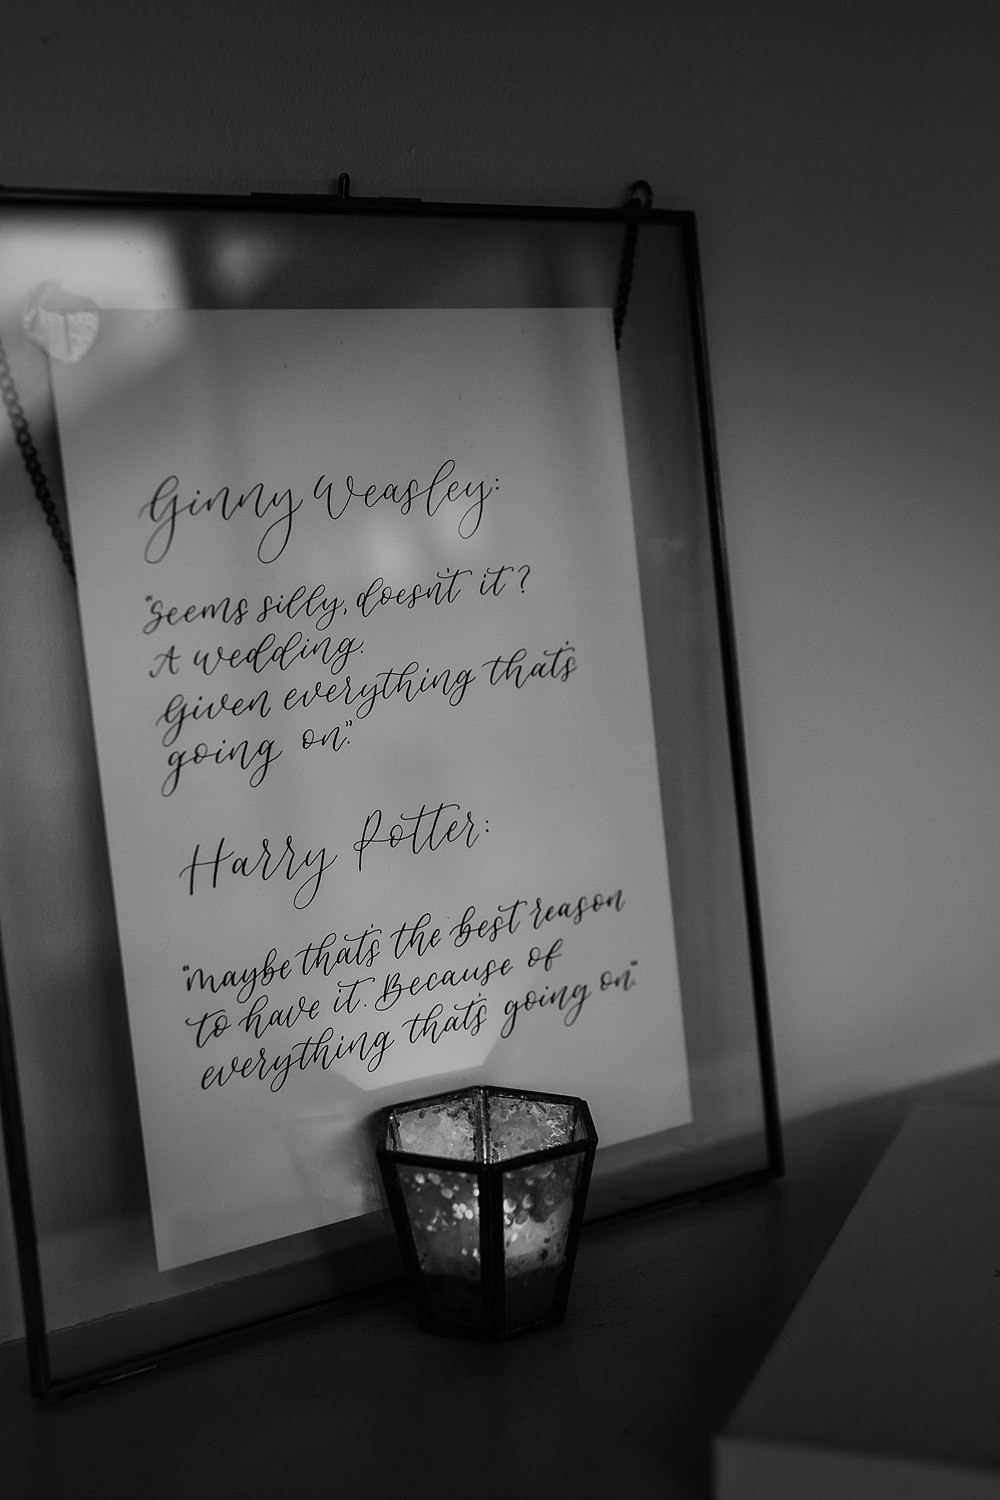 Ginny Weasley:
"Seems silly, doesn't it?
A wedding.
Given everything that's
going on".
Harry Potter:
"maybe that's the best reason
to have it. Because of
everything that's going on".